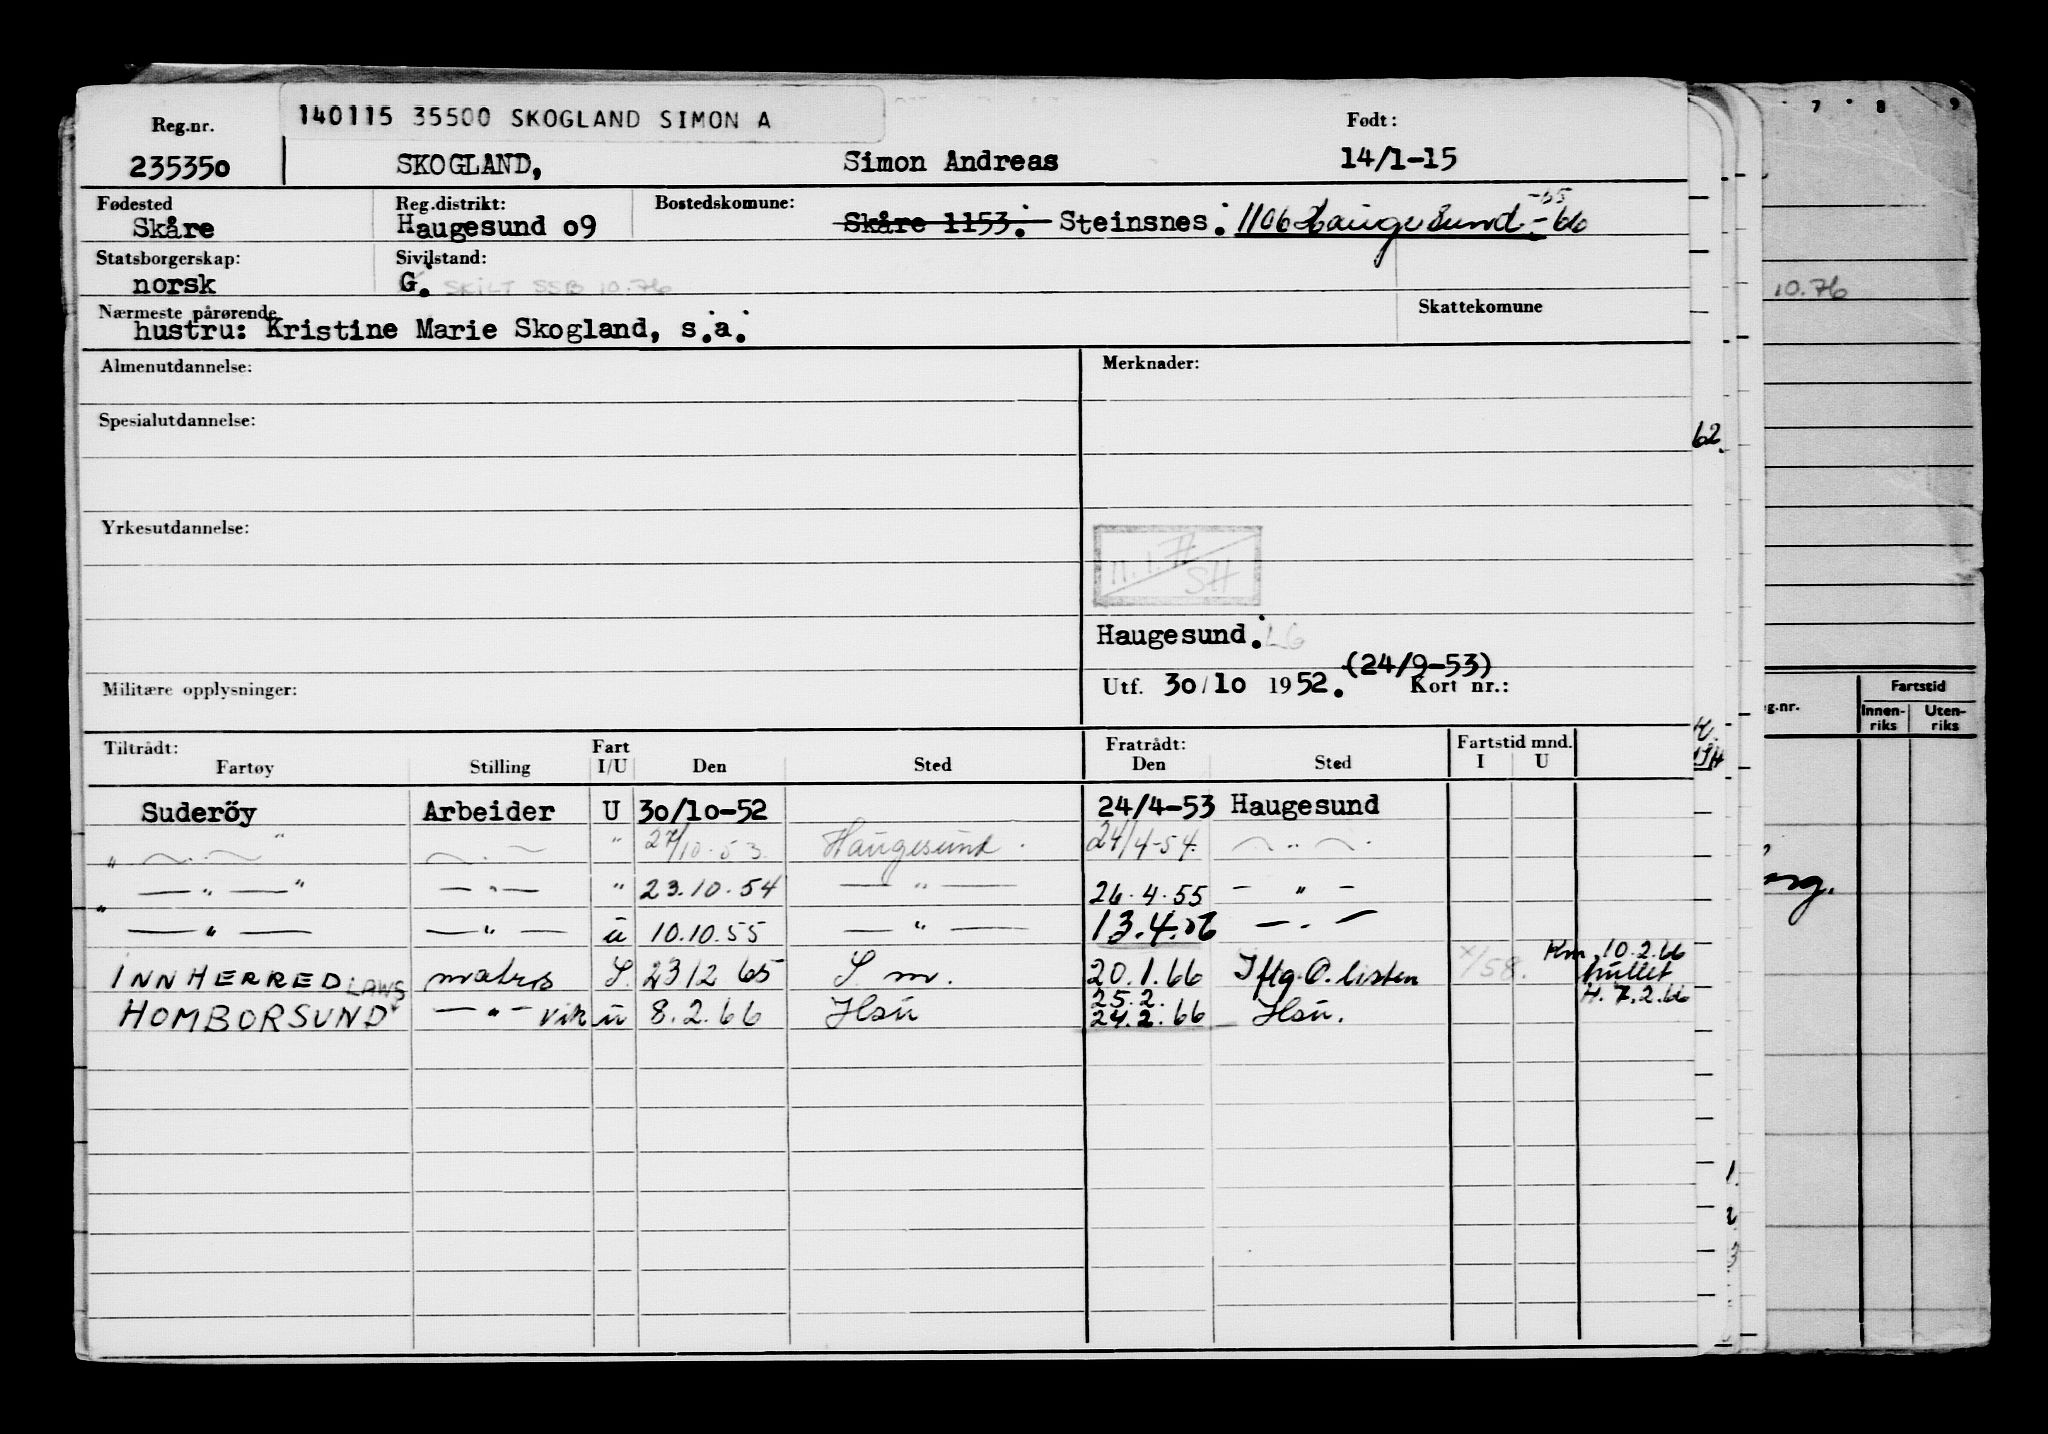 140115 35500 SKOGLAND SIMON A
Reg.nr.
Født:
235350 SKOGLAND, Simon Andreas 14/1-15
Fødested Reg.distrikt: Bostedskomune:
Skåre Haugesund 09 Skåre 1153. Steinsnes. 1106 Haugesund -66
Statsborgerskap: Sivilstand:
norsk G. SKILT SSB 10.76
Nærmeste pårørende Skattekomune
hustru: Kristine Marie Skogland, s.a.
Almenutdannelse: Merknader:
Spesialutdannelse:
Yrkesutdannelse:
SH
Haugesund.
(24/9-53)
Militære opplysninger: Utf. 30/10 1952. Kort nr.:
Tiltrådt: Fart Fratrådt: Fartstid mnd.
Fartøy Stilling I/U Den Sted Den Sted I U
Suderöy Arbeider U 30/10-52 24/4-53 Haugesund
" " 27/10-53. Haugesund. 24/4-54. "
" " " " 23.10.54 " 26.4.55 "
" " " u 10.10.55 " 13.4.56 "
Km 10.2.66
INNHERRED LAWS matros S. 2312 65 S. m. 20.1.66 I flg. O. listen x/58. hullet
H. 7.2.66
25.2.
HOMBORSUND " vik u 8.2.66 Hsu 24.2.66 Hsu.
7 8 9
10.76
62.
g.nr. Fartstid
Innen-riks Uten-riks